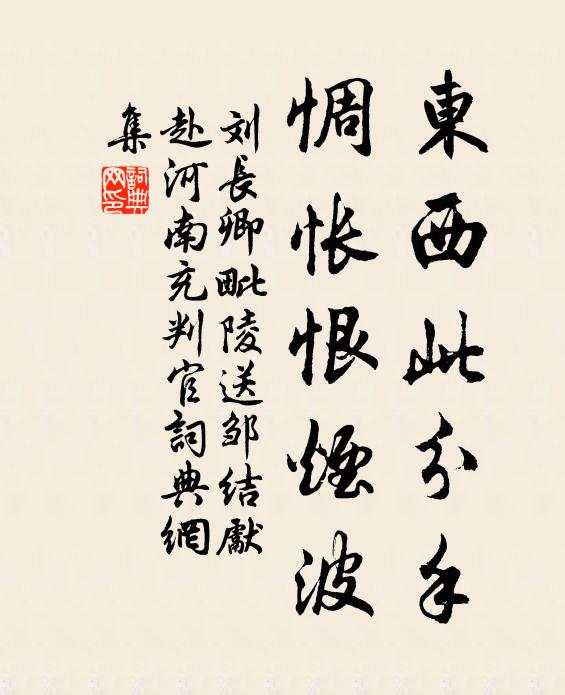 東西此分手
惆怅恨煙波
刘長卿毗陵送邹结獻
赴河南充判官詞典網
集
詞典网印